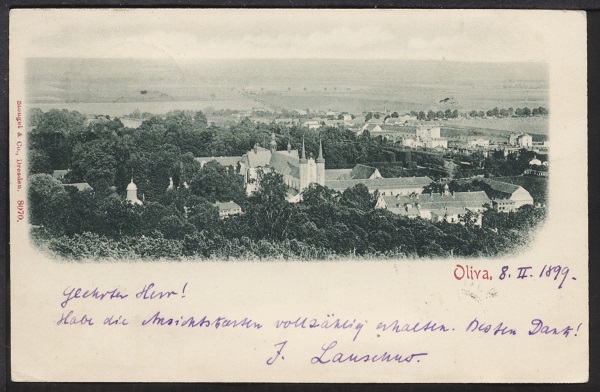 Stengel & Co., Dresden. 8070.
Oliva. 8. II. 1899.
Geehrter Herr!
Habe die Ansichtskarten vollzählig erhalten. Besten Dank!
J. Lauschus